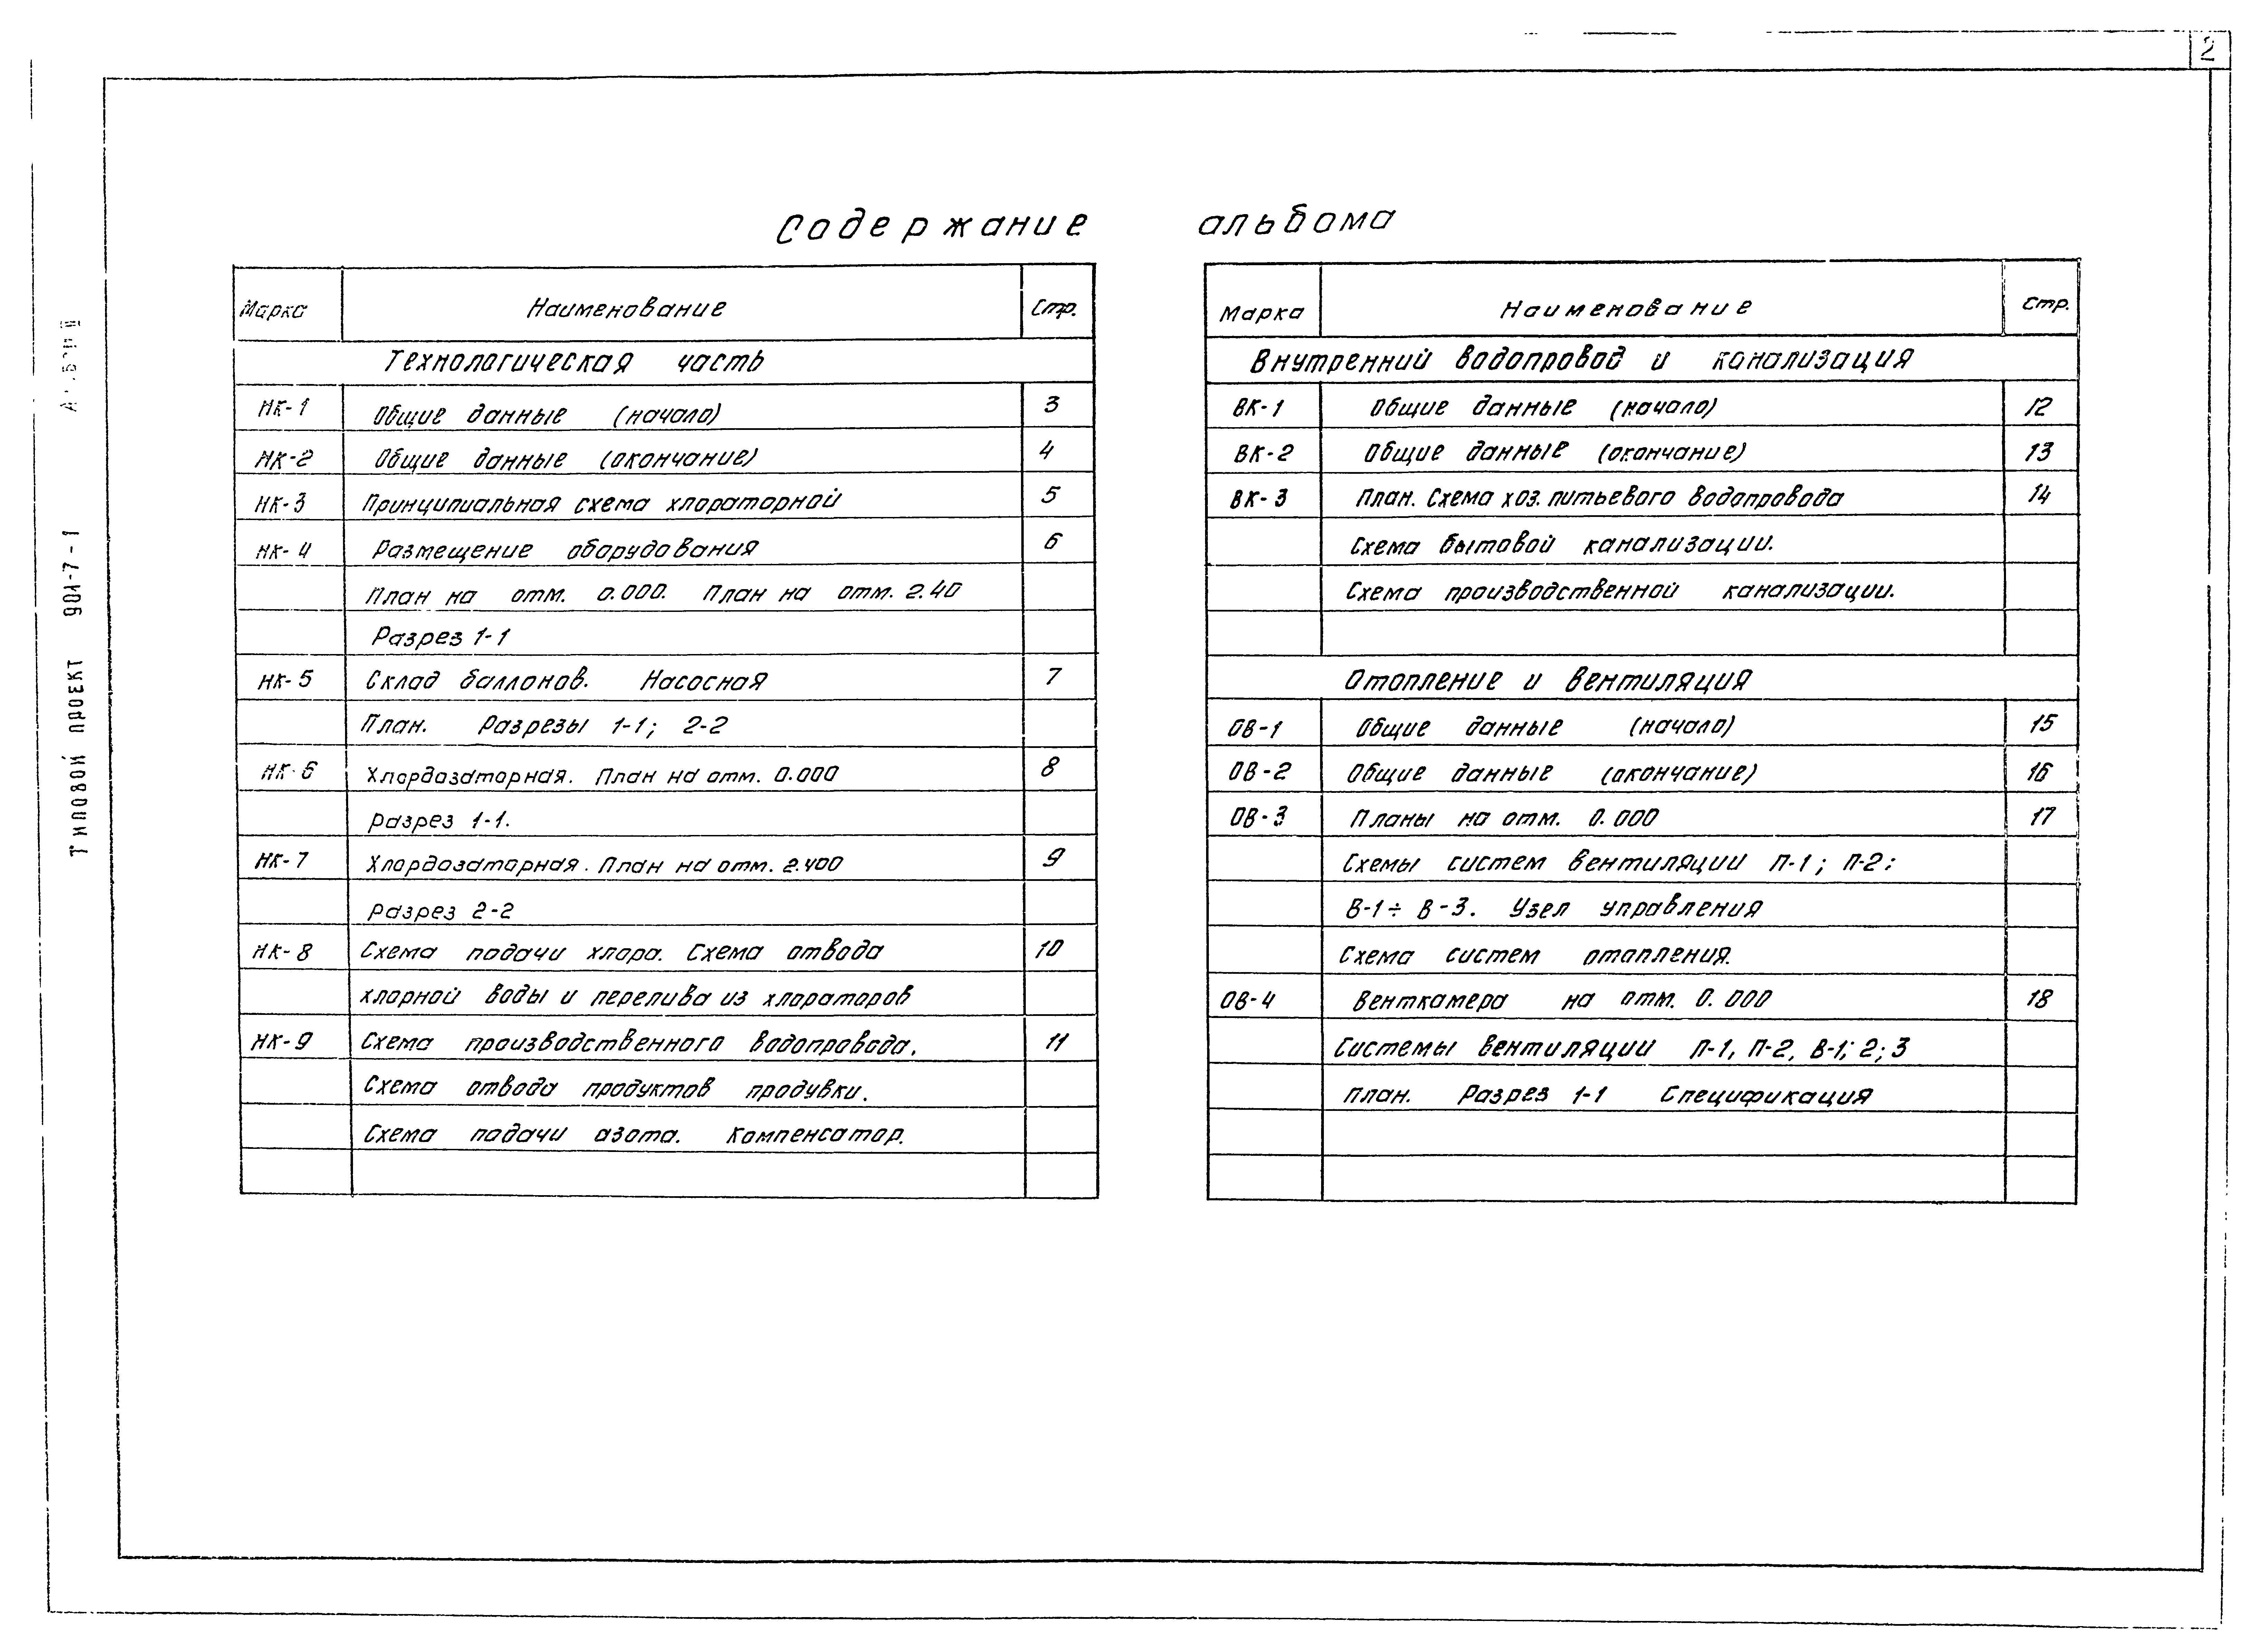 2
Содержание альбома
Марка Наименование Стр.
Технологическая часть
НК-1 Общие данные (начало) 3
НК-2 Общие данные (окончание) 4
НК-3 Принципиальная схема хлораторной 5
НК-4 Размещение оборудования 6
План на отм. 0.000. План на отм. 2.40
Разрез 1-1
НК-5 Склад баллонов. Насосная 7
План. Разрезы 1-1; 2-2
НК-6 Хлордозаторная. План на отм. 0.000 8
Разрез 1-1.
НК-7 Хлордозаторная. План на отм. 2.400 9
Разрез 2-2
НК-8 Схема подачи хлора. Схема отвода 10
хлорной воды и перелива из хлораторов
НК-9 Схема производственного водопровода. 11
Схема отвода продуктов продувки.
Схема подачи азота. Компенсатор.
Марка Наименование Стр.
Внутренний водопровод и канализация
ВК-1 Общие данные (начало) 12
ВК-2 Общие данные (окончание) 13
ВК-3 План. Схема хоз. питьевого водопровода 14
Схема бытовой канализации.
Схема производственной канализации.
Отопление и вентиляция
ОВ-1 Общие данные (начало) 15
ОВ-2 Общие данные (окончание) 16
ОВ-3 Планы на отм. 0.000 17
Схемы систем вентиляции П-1; П-2;
В-1÷В-3. Узел управления
Схема систем отопления.
ОВ-4 Венткамера на отм. 0.000 18
Системы вентиляции П-1, П-2, В-1; 2; 3
План. Разрез 1-1 Спецификация
Типовой проект 901-7-1